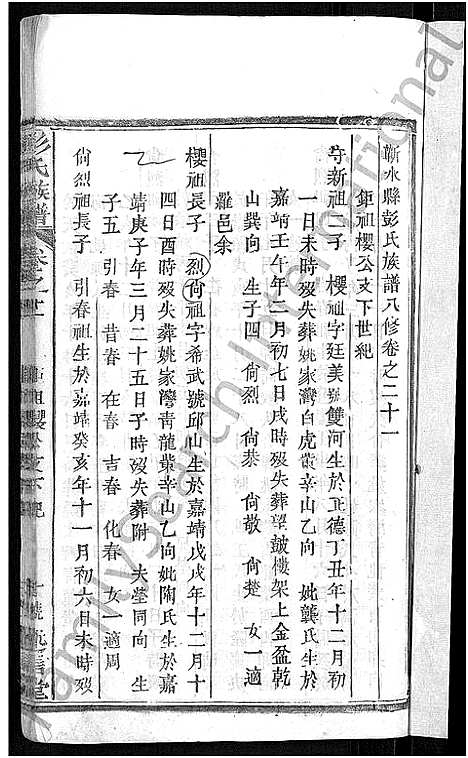 蘄水縣彭氏族譜八修卷之二十一
鉅祖櫻公支下世紀
守新祖子 櫻祖字廷美號雙河生於正德丁丑年十二月初
一日未時歿失葬姚家灣白虎嘴辛山乙向 妣龔氏生於
嘉靖壬午年二月初七日戌時歿失葬望皷樓架上金盆乾
山巽向 生子四 尙烈 尙恭 尙敬 尙楚 女一適
羅邑余
櫻祖長子 烈尙祖字希武號邱山生於嘉靖戊戌年十二月十
四日酉時歿失葬姚家灣靑龍嘴辛山乙向妣陶氏生於嘉
靖庚子年三月二十五日子時歿失葬附 夫塋同向 生
子五 引春 昔春 在春 吉春 化春 女一適周
尙烈祖長子 引春祖生於嘉靖癸亥年十一月初六日未時歿
彭氏族譜 卷之廿一
FamilySearch International